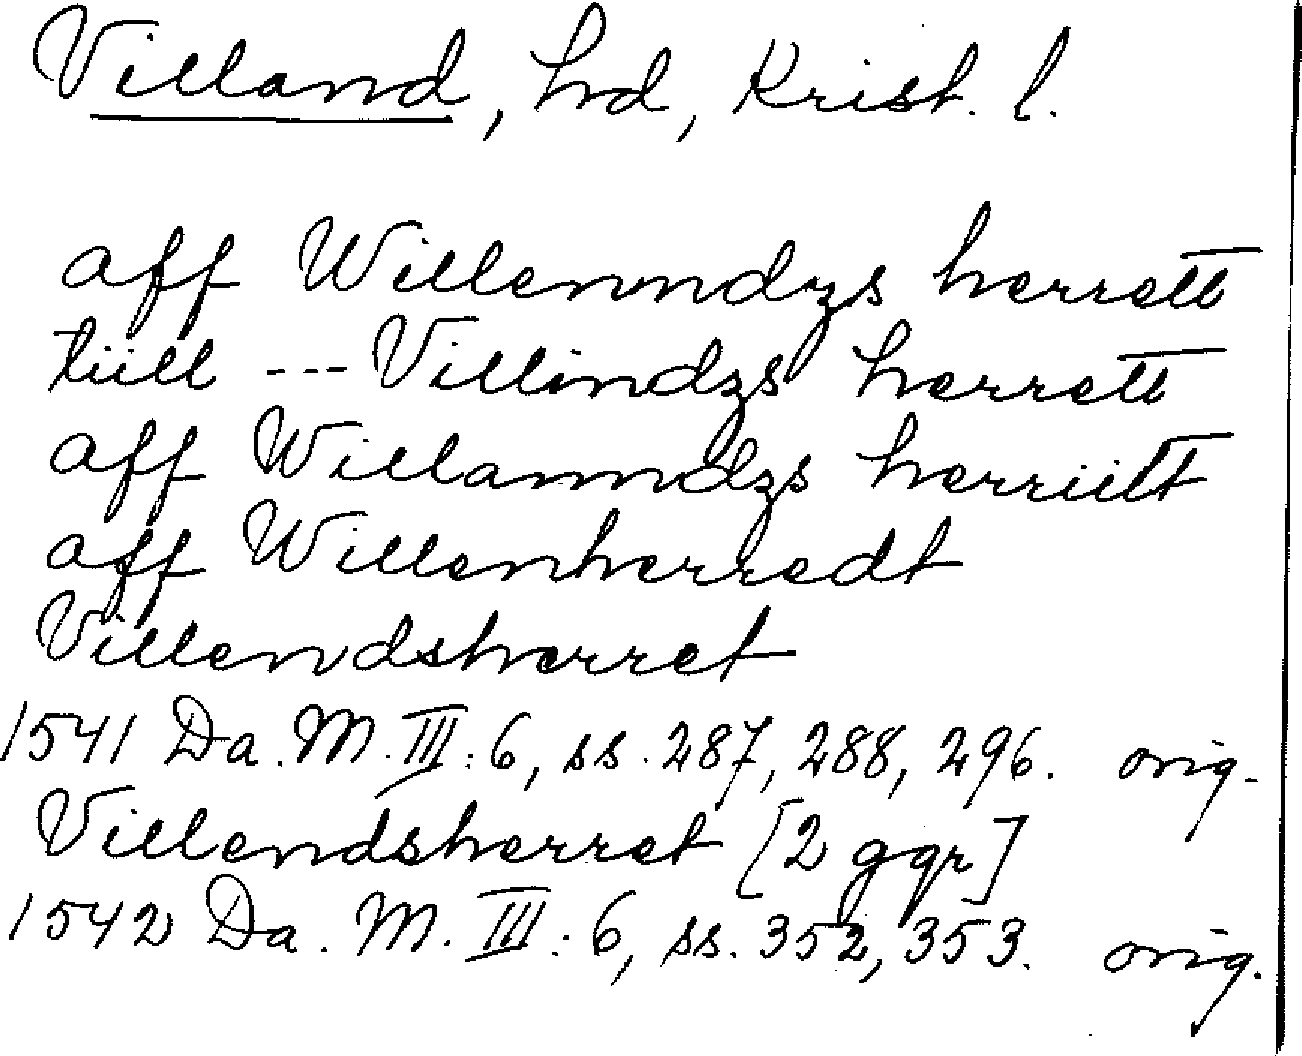 Villand, hd, Krist. l.
aff Willenndzs herrett
tiill --- Villindzs herrett
aff Willanndzs herriitt
aff Willenherredt
Villendsherret
1541 Da. M. III: 6, ss. 287, 288, 296. orig.
Villendsherret [2 ggr]
1542 Da. M. III: 6, ss. 352, 353. orig.